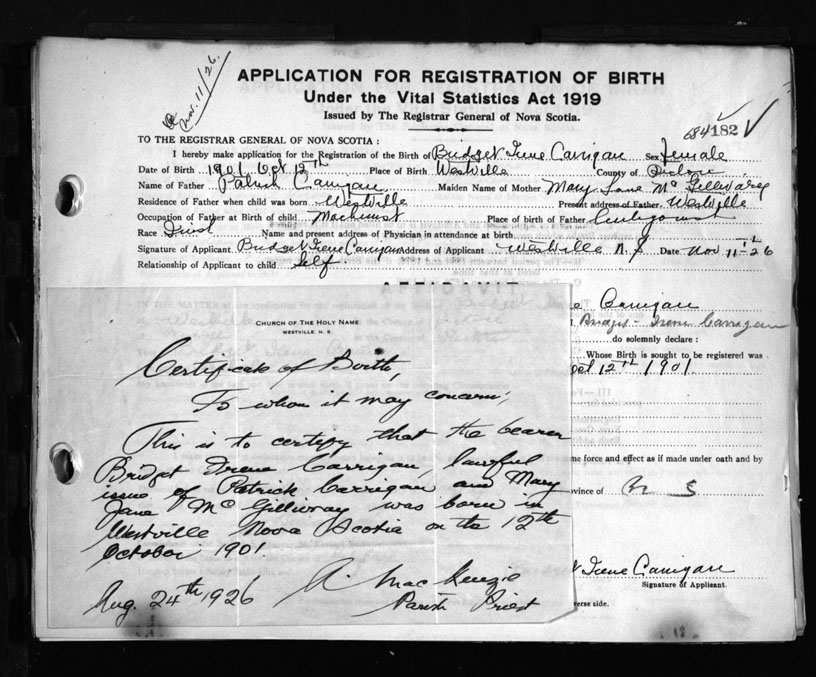 Nov. 11/26.
APPLICATION FOR REGISTRATION OF BIRTH
Under the Vital Statistics Act 1919
Issued by The Registrar General of Nova Scotia.
684182
TO THE REGISTRAR GENERAL OF NOVA SCOTIA:
I hereby make application for the Registration of the Birth of Bridget Irene Carrigan Sex female
Date of Birth 1901 Oct 12th Place of Birth Westville County of Pictou
Name of Father Patrick Carrigan Maiden Name of Mother Mary Jane McGillivary
Residence of Father when child was born Westville Present address of Father Westville
Occupation of Father at Birth of child Machinist Place of Father
Race Name and present address of Physician in attendance at birth
Signature of Applicant Bridget Irene Carrigan Address of Applicant Westville N.S Date Nov 11th 26
Relationship of Applicant to child Self
AFFIDAVIT
e Carrigan
I, Bridget Irene Carrigan
do solemnly declare:
Whose Birth is sought to be registered was
Oct 12th 1901
me force and effect as if made under oath and by
ovince of N S
t Irene Carrigan
Signature of Applicant.
verse side.
CHURCH OF THE HOLY NAME
WESTVILLE, N. S.
Certificate of Birth,
To whom it may concern;
This is to certify that the bearer
Bridget Irene Carrigan, lawful
issue of Patrick Carrigan and Mary
Jane McGillivray was born in
Westville Nova Scotia on the 12th
October 1901.
A. MacKenzie
Aug. 24th 1926 Parish Priest